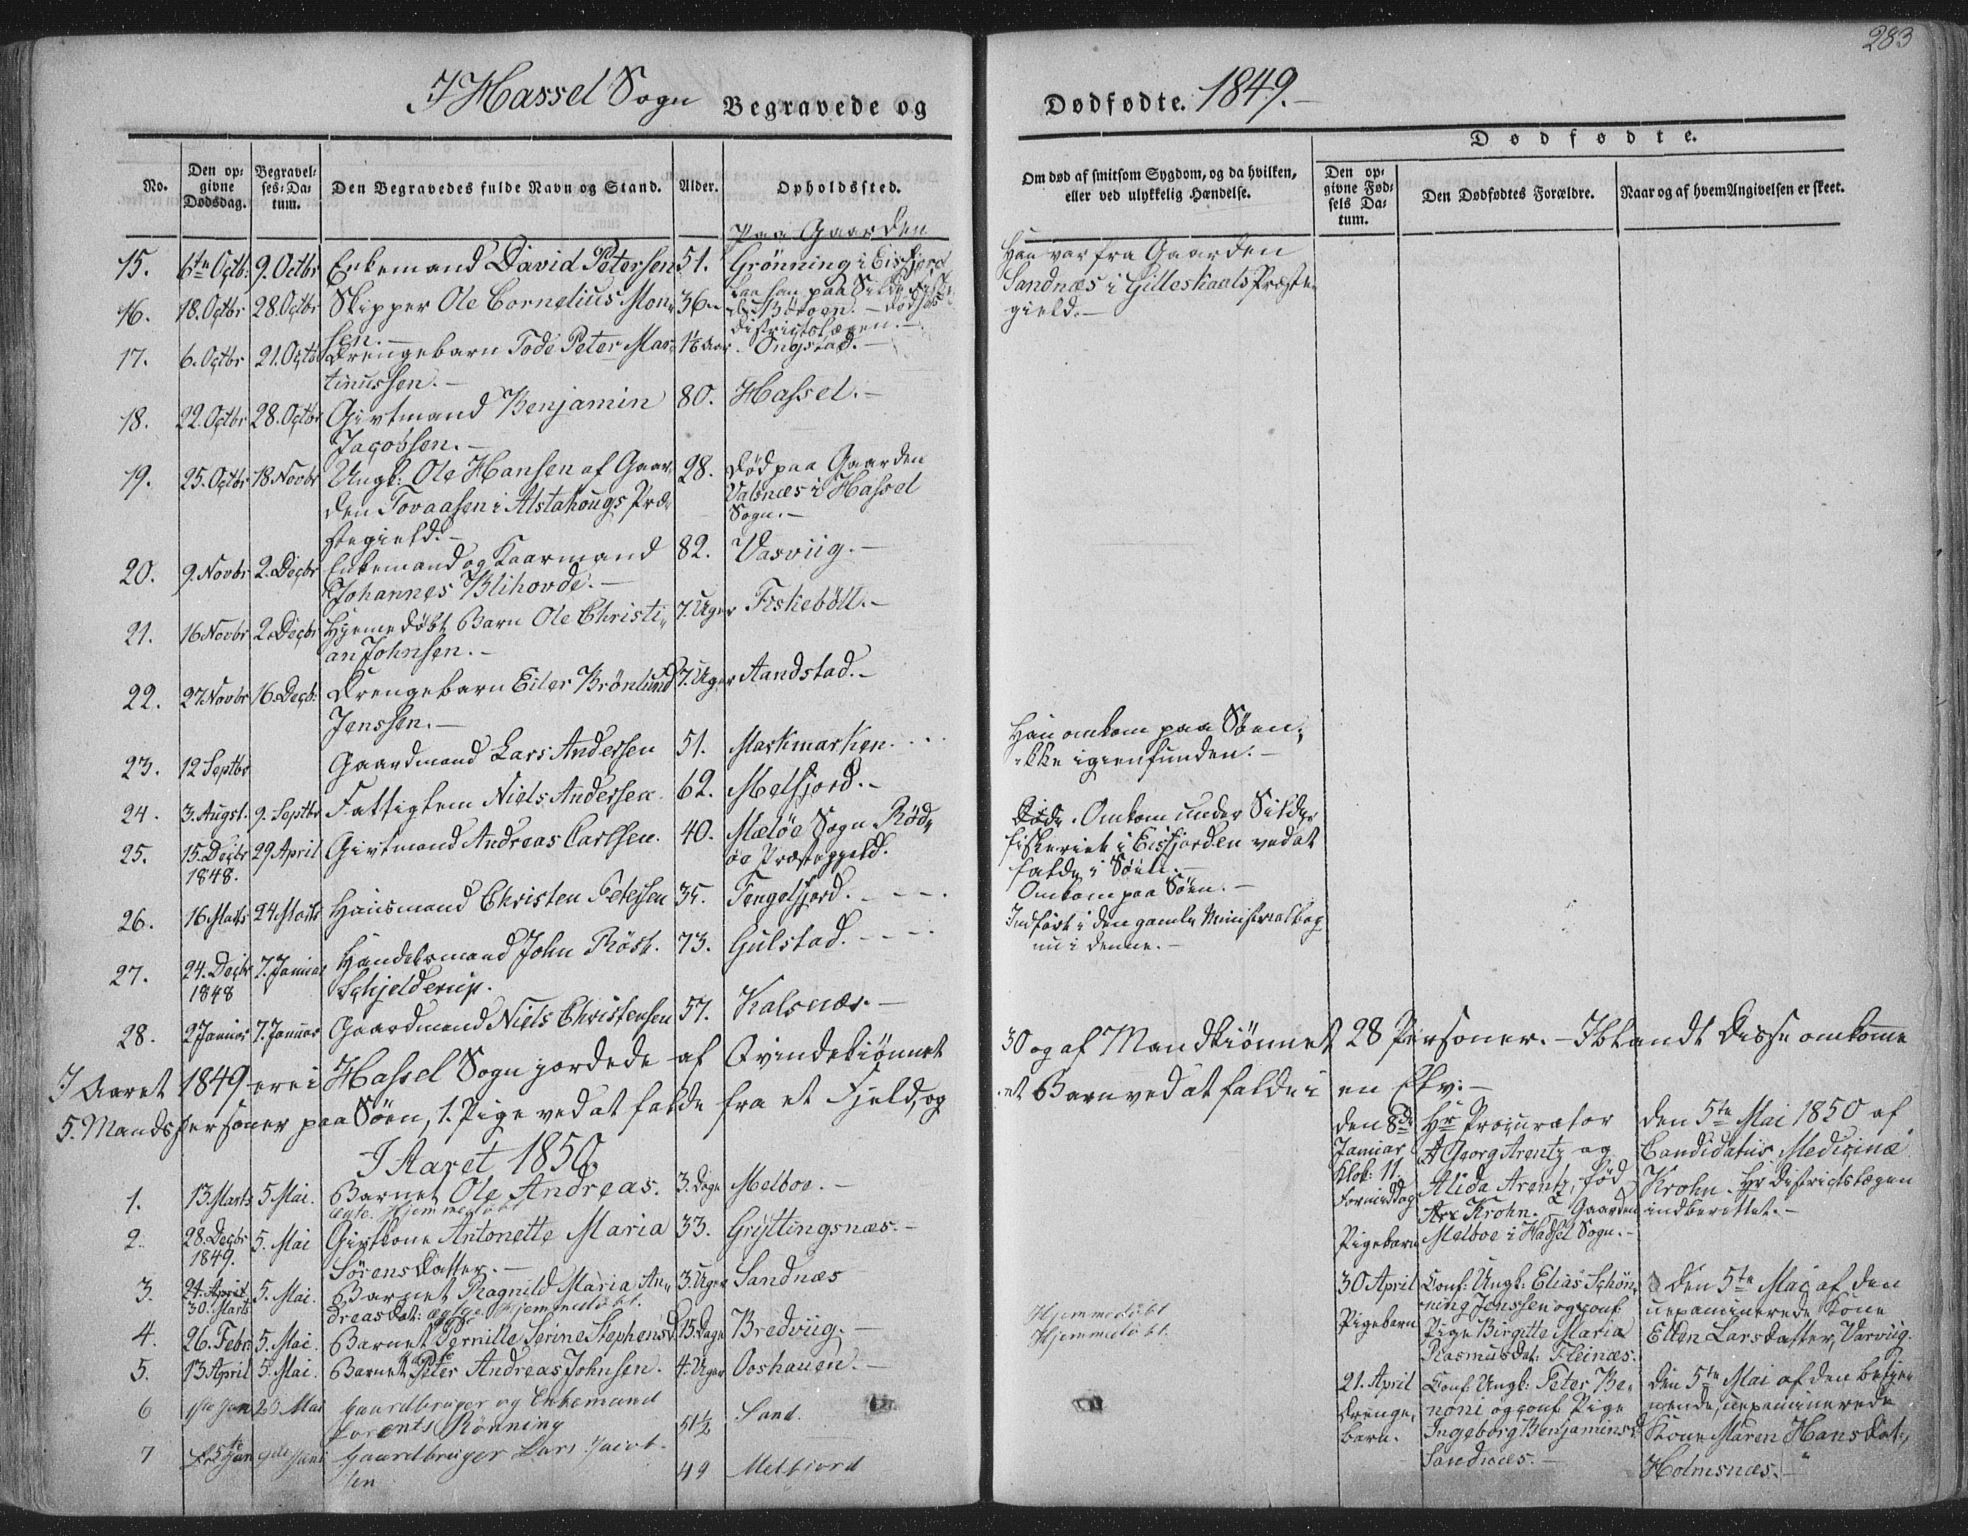 283
I Hassel Sogn Begravede og Dødfødte. 1849.-
Dødfødte.
No.
Den opgivne Dødsdag.
Begravelses-Datum.
Den Begravedes fulde Navn og Stand.
Alder.
Opholdssted.
Om død af smitsom Sygdom, og da hvilken, eller ved ulykkelig Hændelse.
Den opgivne Fødsels Datum.
Den Dødfødtes Forældre.
Naar og af hvem Angivelsen er skeet.
paa Gaarden
15. 6te Octb: 9. Octbr Enkemand David Petersen 51. Grønning i Eisfjord
Han var fra Gaarden
Sandnæs i Gilleskaals Præste-
gield.-
16. 18. Octbr 28. Octbr Skipper Ole Cornelius Mon-
sen.- 36
Districtslægen.-
17. 6. Octbr 21. Octb Drengebarn Tode Peter Mar-
tinussen.- Ongstad.-
18. 22. Octbr 28. Octbr Givtmand Benjamin
Jacobsen.- 80. Hassel.-
19. 25. Octbr 18 Novbr Ungk: Ole Hansen af Gaar-
den Tovaasen i Alstahougs Præ-
stegield.- 28. Død paa Gaarden
Valsnæs i Hassel
Sogn.-
20. 9. Novbr 2. Decbr Enkemand og Kaarmand
Johannes Blihovde.- 82. Vasviig.-
21. 16 Novbr 2. Decbr Hjemedøbt Barn Ole Christi-
an Johnsen.- 7. Uger Fiskebøll.-
22. 27 Novbr 16. Decb: Drengebarn Eiler Brønlund
Jenssen.- 7. Uger Aandstad.-
23. 12 Septbr Gaardmand Lars Andersen 51. Markmarken.
Han omkom paa Søen,
ikke igienfunden.-
24. 3. Augst. 9. Septbr Fattiglem Niels Andersen. 62. Melfjord.-
25. 15. Decbr
1848. 29 April Givtmand Andreas Carlsen. 40. Meløe Sogn Rød-
øe Præstegjeld.
Døde. Omkom under Silde-
fiskeriet i Eisfjorden ved at
falde i Søen.-
26. 16 Marts 24 Marts Huusmand Christen Petersen 35. Fengelfjord.
Omkom paa Søen.-
27. 24. Decbr
1848 7. Januar Handelsmand John Røst.
Schjelderup. 73. Gulstad.
Indført i den gamle Ministerialbog
nu i denne.-
28. 2 Januar 7. Januar Gaardmand Niels Christensen 57. Kalsnæs.-
I Aaret 1849 ere i Hassel Sogn jordede af Qvindekiønnet 30 og af Mandkiønnet 28 Personer.- Iblandt Disse omkomne
5. Mandspersoner paa Søen, 1. Pige ved at falde fra et Fjeld, og et Barn ved at falde i en Elv.-
I Aaret 1850.
1. 13. Marts 5. Mai. Barnet Ole Andreas.
Ægte. Hjemmedøbt 3. Dage Melboe.-
2. 28. Decbr
1849. 5. Mai Givtkone Antonette Maria
Sørensdatter.- 33. Gryttingsnæs.-
3. 24. April
30. Marts 5. Mai. Barnet Ragnild Maria An-
dreasdat: ægte. Hjemmedøbt. 3. Uger Sandnæs
4. 26. Febr: 5. Mai. Barnet Pernille Serine Stephensd 15. Dage Bredviig.-
Hjemmedøbt
5. 13 April 5. Mai. Barnet Peter Andreas Johnsen. 4. Uger Ooshauen.-
Hjemmedøbt.
6 1ste Jan 26 Mai Gaardbruger og Enkemand
Lorents Rønning 51½ Sand.
7 5te Jun 9de Juni Gaardbruger Lars Jacob-
sen 49 Melfiord
Den 8de
Januar
Klok: 11.
Formiddag
Pigebarn
Hr Procurator
A Georg Arentz og
Alida Arentz, fød
Krohn.- Gaarden
Melboe i Hassel Sogn.-
Den 5te Mai 1850 af
Candidatus Medicinæ
Krohn. Hr Districtslægen
indberettet.-
30 April
Pigebarn
Conf: Ungk: Elias Schøn-
ning Jenssen og conf
Pige Birgitte Maria
Rasmusdat: Fleinæs.
Den 5te Mai af den
uexaminerede Kone
Ellen Larsdatter, Varviig.
21. April
Drenge-
barn.
Conf: Ungk: Peter Be-
noni og conf Pige
Ingeborg Benjaminsd
Sandnæs.-
Den 5te Mai af den betje-
nende, uexaminerede
Kone Maren Hansdat:
Holmsnæs.-